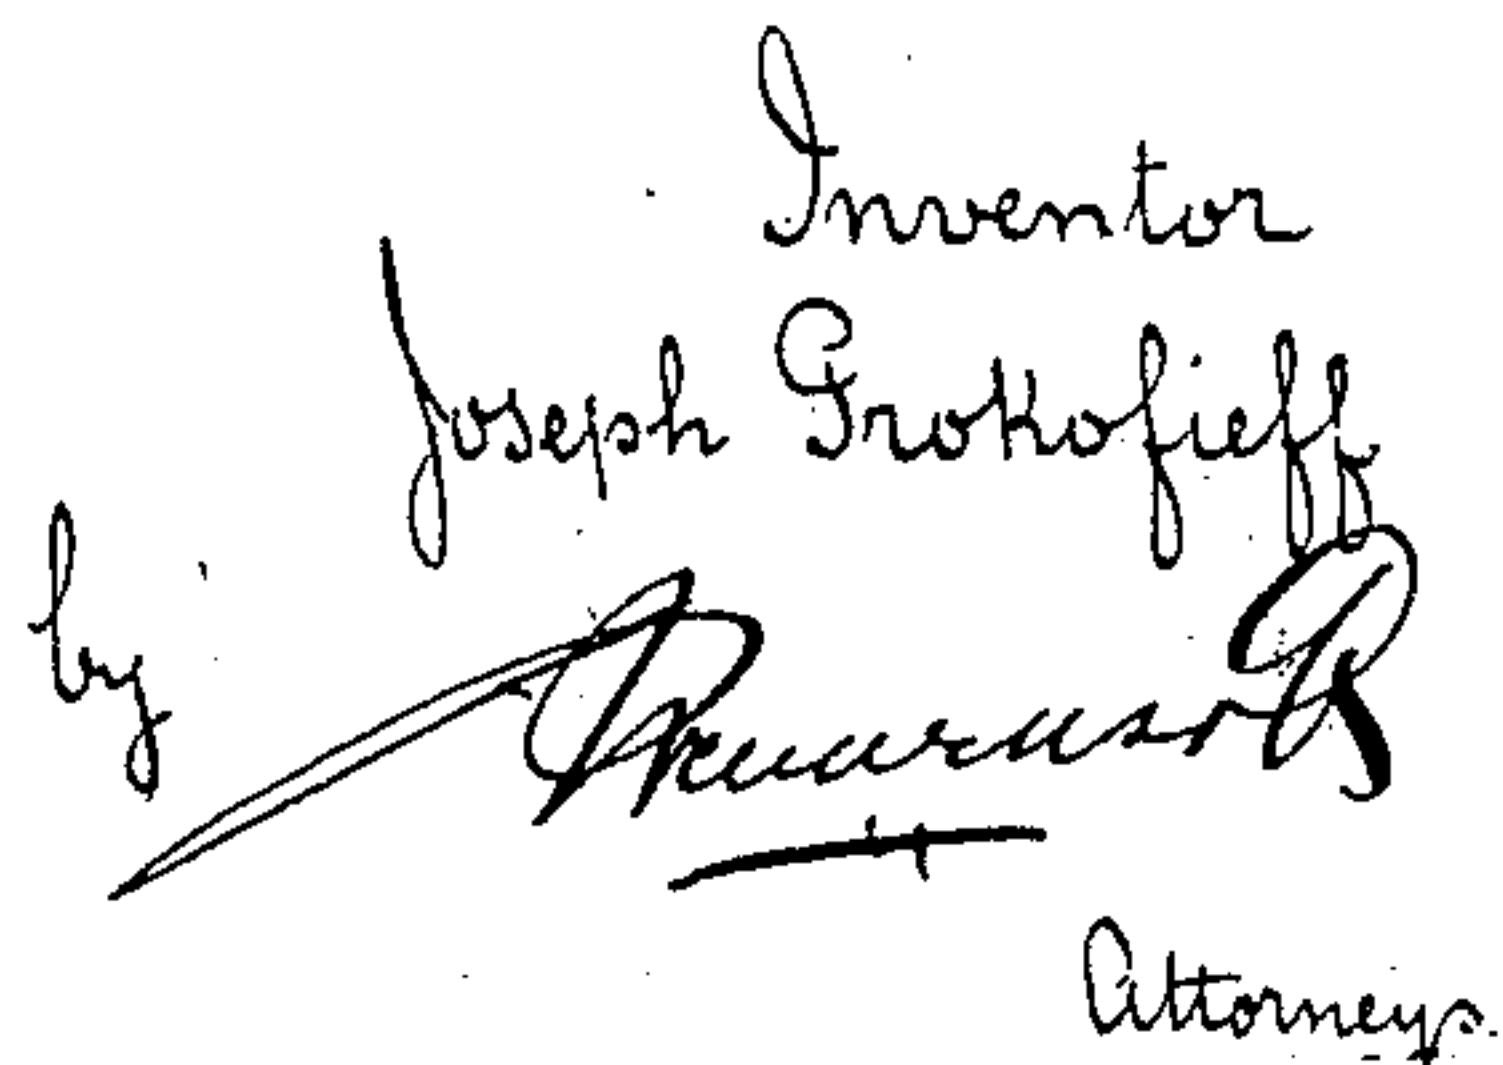 Inventor
Joseph Prokofieff
by
Attorneys.